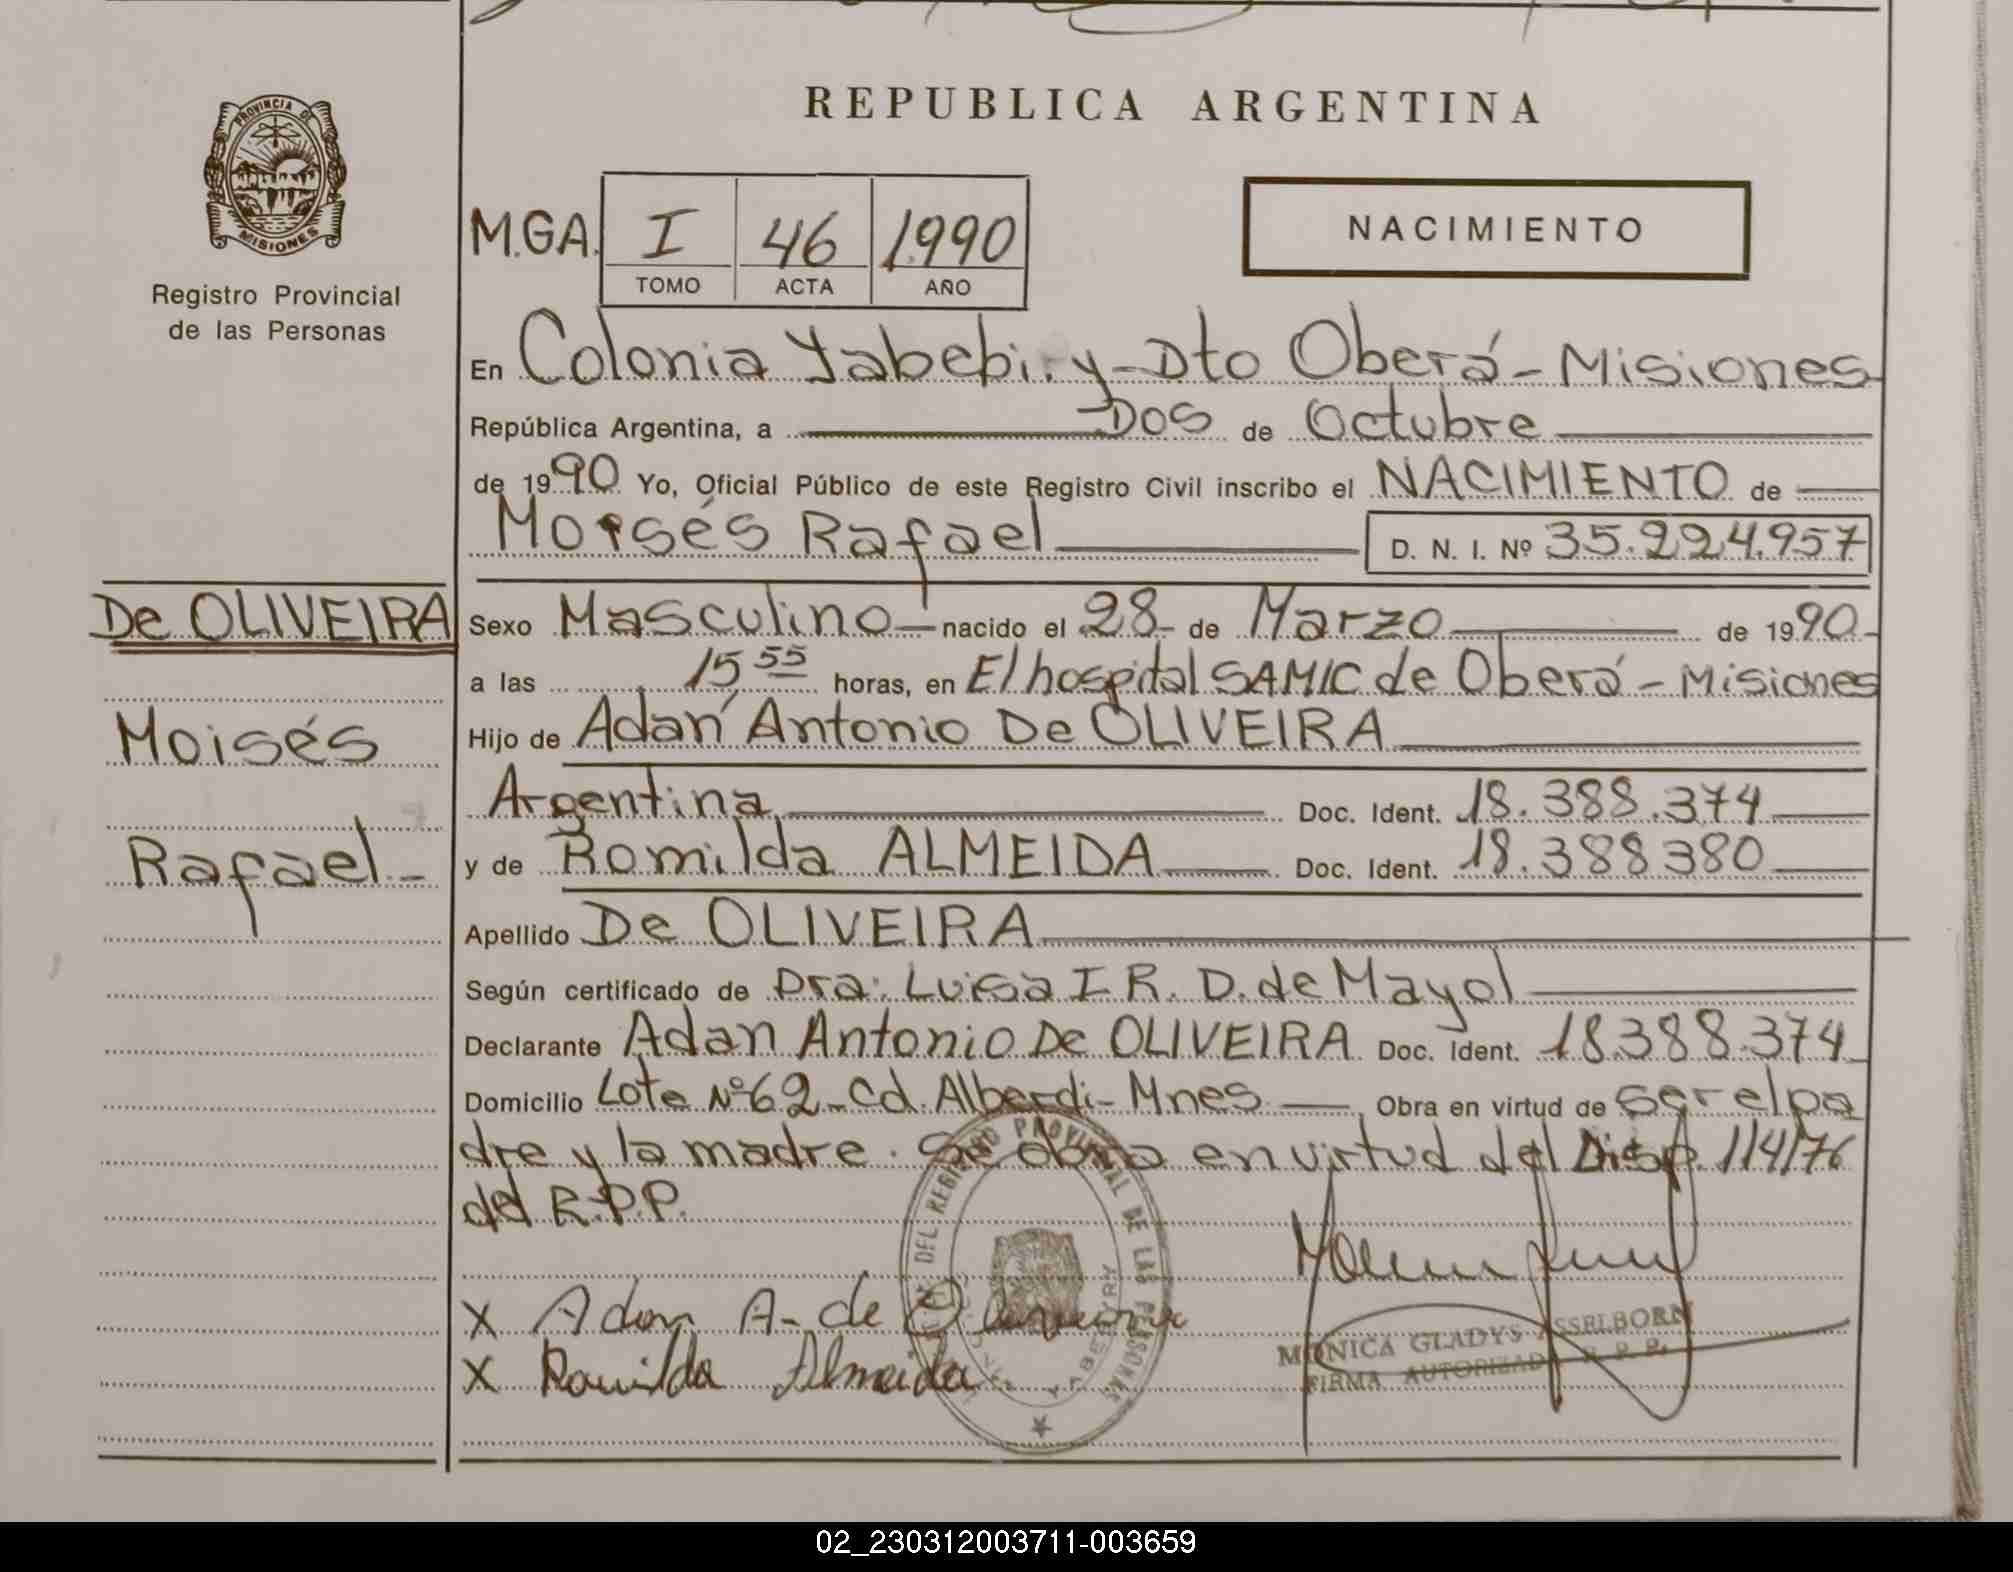 REPUBLICA ARGENTINA
PROVINCIA DE
MISIONES
Registro Provincial
de las Personas
M.G.A. I 46 1.990
TOMO ACTA AÑO
NACIMIENTO
En Colonia Yabebiry - Dto Oberá - Misiones
República Argentina, a Dos de Octubre
de 1990 Yo, Oficial Público de este Registro Civil inscribo el NACIMIENTO de
Moisés Rafael D. N. I. Nº 35.224.957
De OLIVEIRA
Moisés
Rafael -
Sexo Masculino - nacido el 28 - de Marzo de 1990 -
a las 15 55 horas, en El hospital SAMIC de Oberá - Misiones
Hijo de Adán Antonio De OLIVEIRA
Argentina Doc. Ident. 18.388.374
y de Romilda ALMEIDA Doc. Ident. 18.388380
Apellido De OLIVEIRA
Según certificado de Dra: Luisa I R. D. de Mayol
Declarante Adan Antonio De OLIVEIRA Doc. Ident. 18.388.374
Domicilio Lote Nº 62 - Cd. Alberdi - Mnes , Obra en virtud de ser el pa
dre y la madre. Se obra en virtud del Disp. 114/76
del R.P.P.
DEL REGISTRO PROVINCIAL DE LAS PERSONAS
X Adan A- de Oliveira
X Romilda Almeida
MONICA GLADYS ASSELBORN
FIRMA AUTORIZADA R. P. P.
02_230312003711-003659